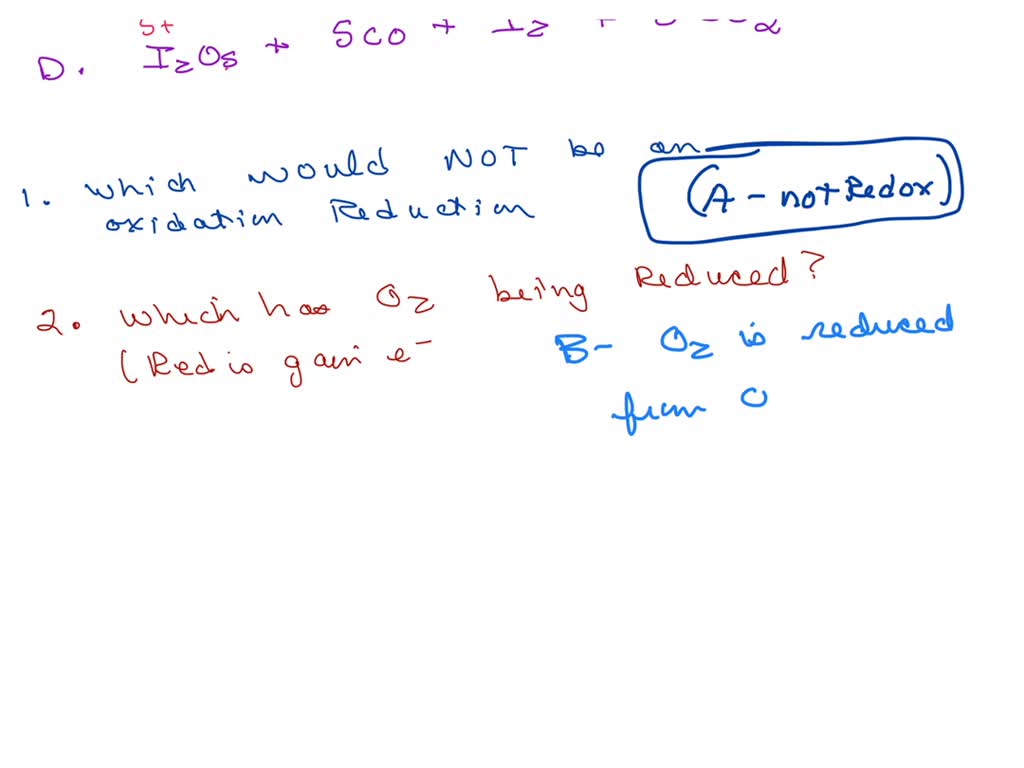 5+
D. I2O5 + 5CO +
1. which would NOT be an
oxidation Reduction
(A - not Redox)
2. which has O2 being Reduced?
(Red is gain e-
B- O2 is reduced
from O